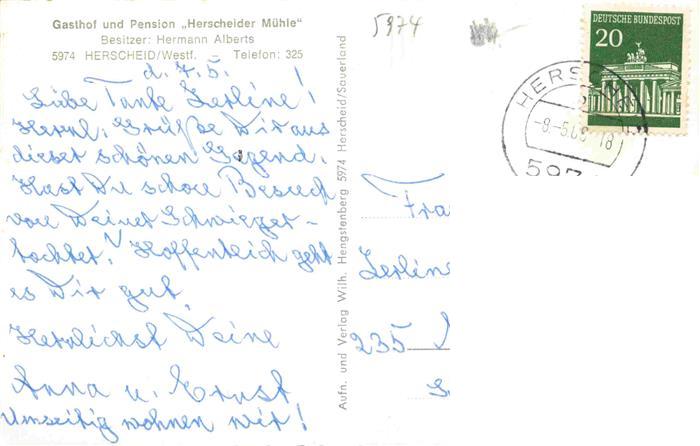 Gasthof und Pension „Herscheider Mühle"
Besitzer: Hermann Alberts
5974 HERSCHEID/Westf. Telefon: 325
d. 7.5.
Liebe Tante Zerline!
Herzl. Grüße Dir aus
dieser schönen Gegend.
Hast Du schon Besuch
von Deiner Schwieger-
tochter? Hoffentlich geht
es Dir gut.
Herzlichst Deine
Anna u. Ernst
Umseitig wohnen wir!
Aufn. und Verlag Wilh. Hengstenberg 5974 Herscheid/Sauerland
5974
DEUTSCHE BUNDESPOST
20
HERS
-8.-5.68 18
597
Fra
Zerline
235